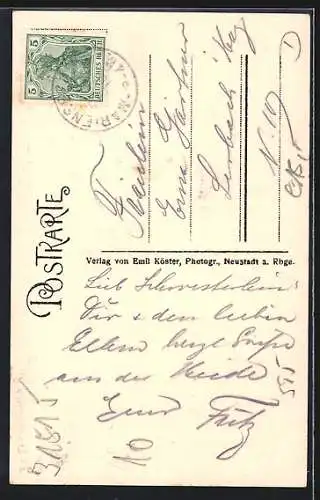 5 DEUTSCHES REICH 5
MARIENS
POSTKARTE
Fräulein
Erna Gärtner
No 19
Verlag von Emil Köster, Photogr., Neustadt a. Rbge.
Lieb Schwesterlein
Dir & den lieben
Eltern herzl Grüße
aus der Heide
Euer Fritz
595
10